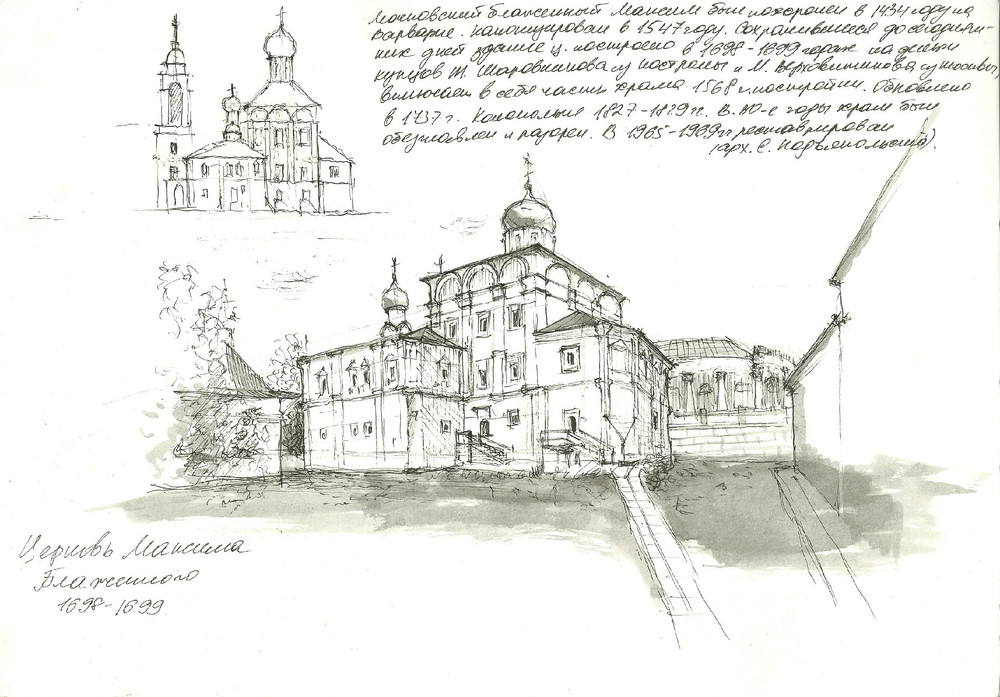 Московский блаженный Максим был похоронен в 1434 году на
Варварке. Канонизирован в 1547 году. Сохранившееся до сегодняш-
них дней здание ц. построено в 1698-1699 годах на деньги
купцов М. Шаровникова из Костромы и М. Верховитинова из Москвы
включает в себя часть храма 1568 г. постройки. Обновлено
в 1737 г. Колокольня 1827-1829 гг. В 30-е годы храм был
обезглавлен и разорен. В 1965-1969 гг реставрирован
(арх. С. Подъяпольский).
Церковь Максима
Блаженного
1698-1699